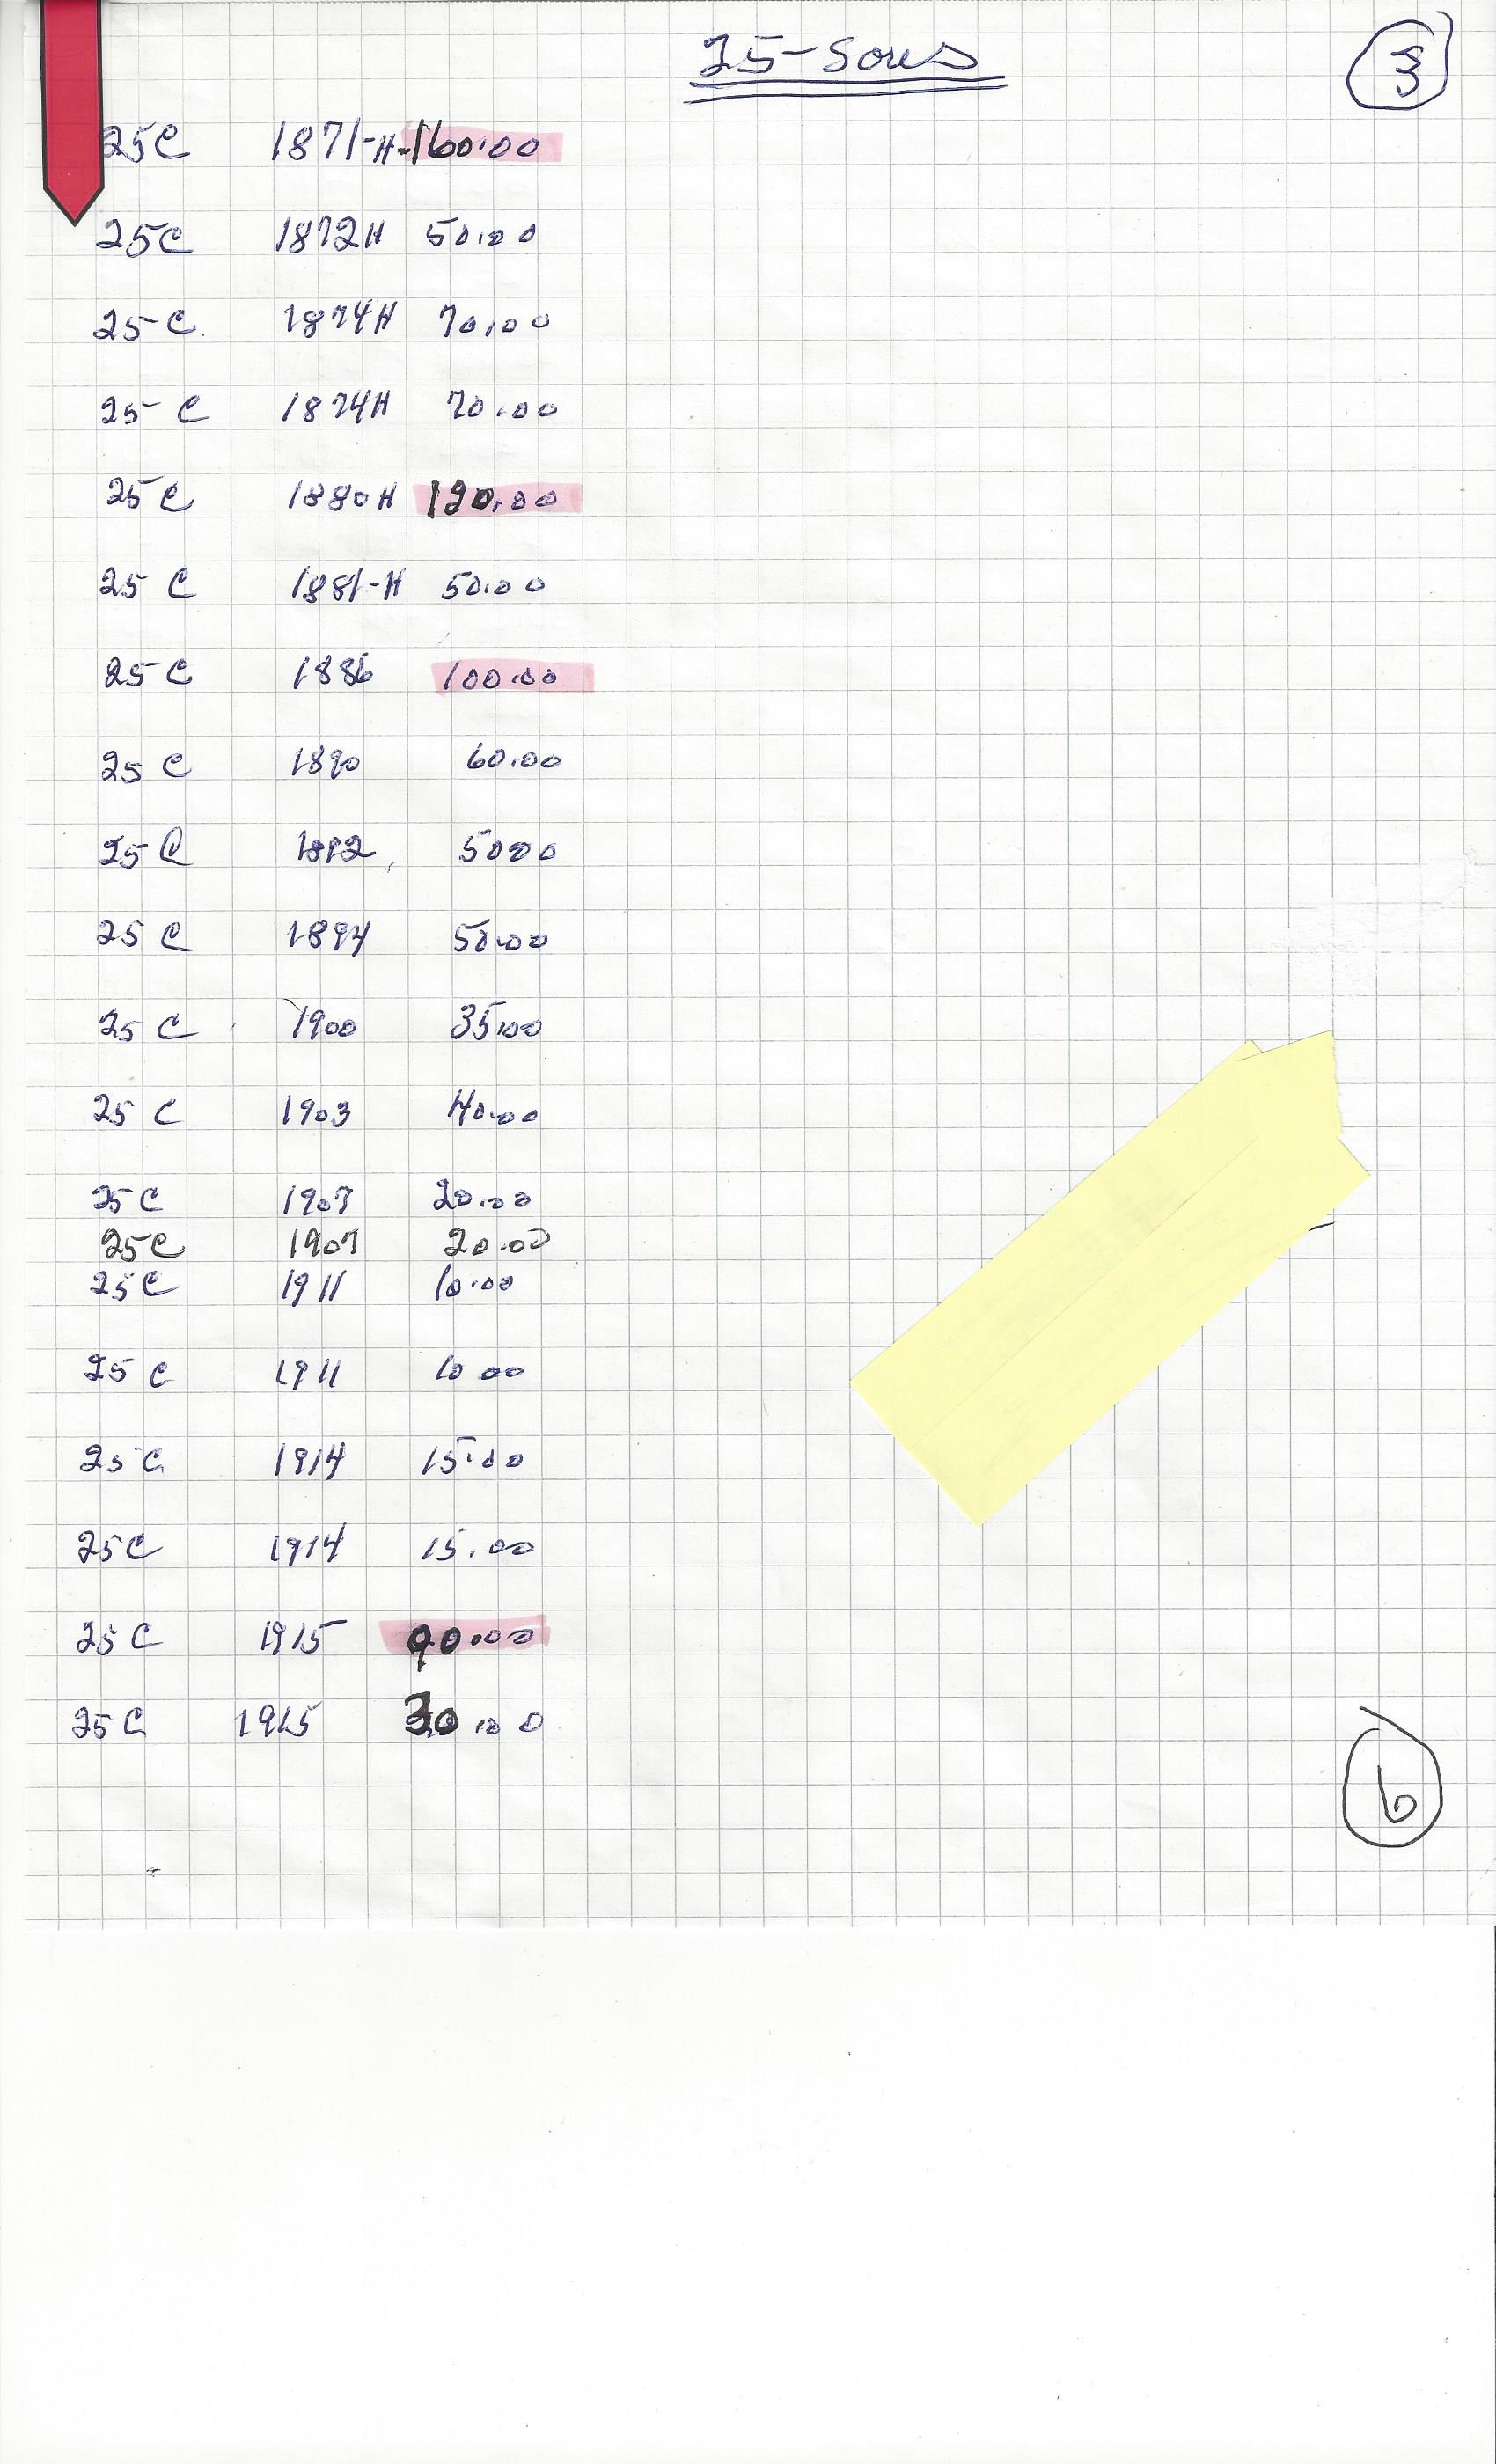 25-Sous
3
25C 1871-H-160.00
25C 1872H 50.00
25-C 1874H 70.00
25-C 1874H 70.00
25C 1880H 120.00
25 C 1881-H 50.00
25 C 1886 100.00
25 C 1890 60.00
25 C 1892 5000
25 C 1894 50.00
25 C 1900 35.00
25 C 1903 40.00
25 C 1907 20.00
25C 1907 20.00
25C 1911 10.00
25 C 1911 10 00
25 C 1914 15.00
25C 1914 15.00
25 C 1915 90.00
25 C 1915 30.00
6